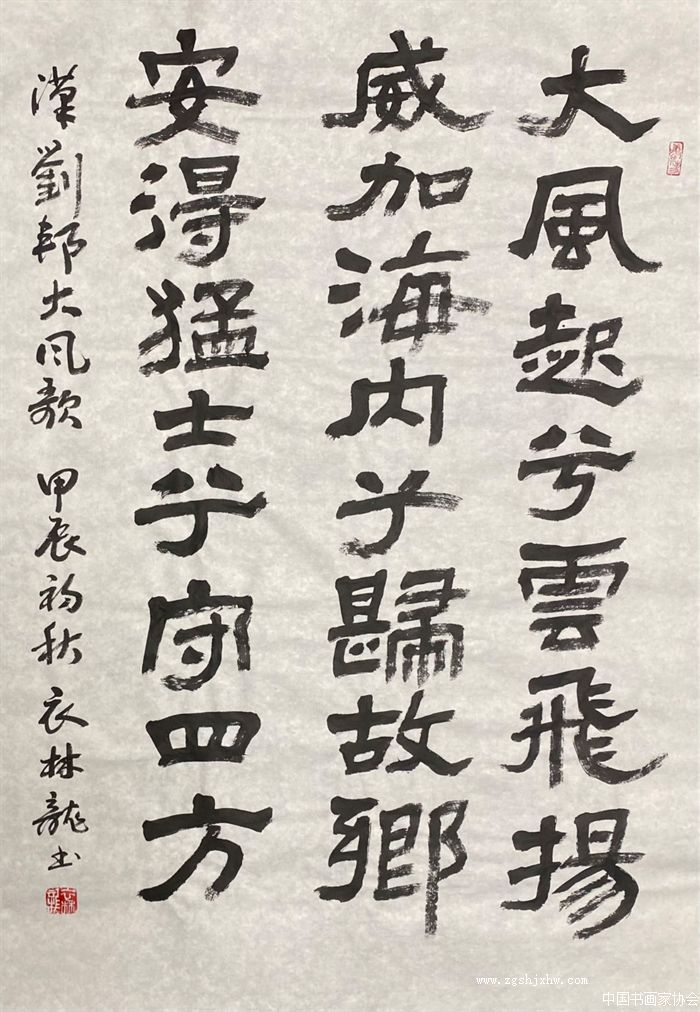 大風起兮雲飛揚
威加海内兮歸故鄉
安得猛士兮守四方
漢劉邦大風歌 甲辰初秋 衣林龍書
www.zgshjxhw.com
中国书画家协会